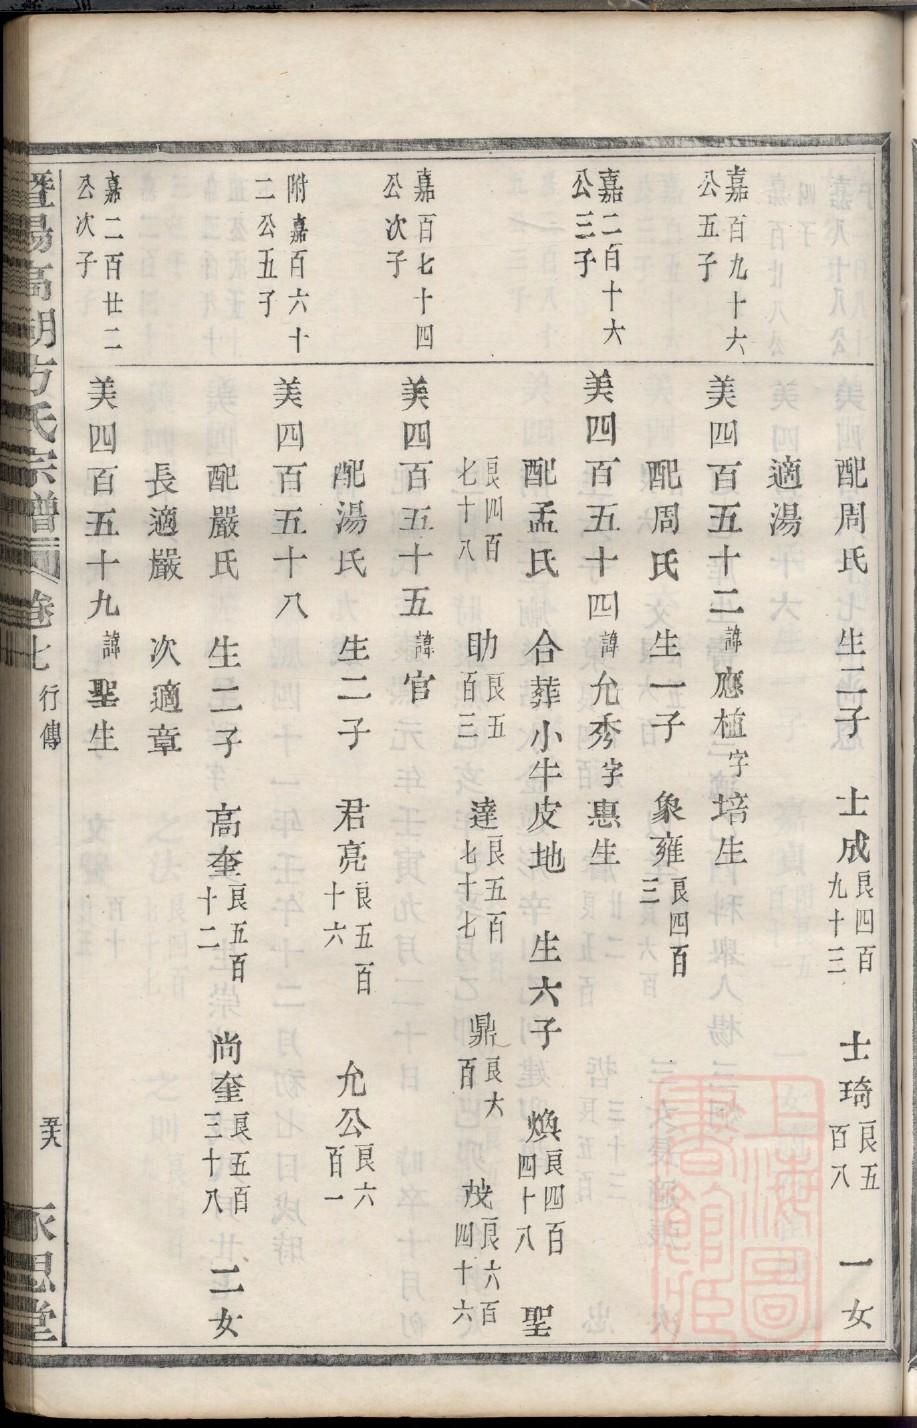 配周氏 生二子 士成良四百九十三 士琦良五百八 一女
適湯
嘉百九十六公五子
美四百五十二諱應植字培生
配周氏 生一子 象雍良四百三
嘉二百十六公三子
美四百五十四諱允秀字惠生
配孟氏 合葬小牛皮地 生六子 煥良四百四十八 聖
良四百七十八 助良五百三 達良五百七十七 鼎良六百 茂良六百四十六
嘉百七十四公次子
美四百五十五諱官
配湯氏 生二子 君亮良五百十六 允公良六百一
附嘉百六十二公五子
美四百五十八
配嚴氏 生二子 高奎良五百十二 尚奎良五百三十八 二女
長適嚴 次適章
嘉二百廿二公次子
美四百五十九諱聖生
暨陽高湖方氏宗譜 卷七 行傳 永思堂
上海圖書館藏